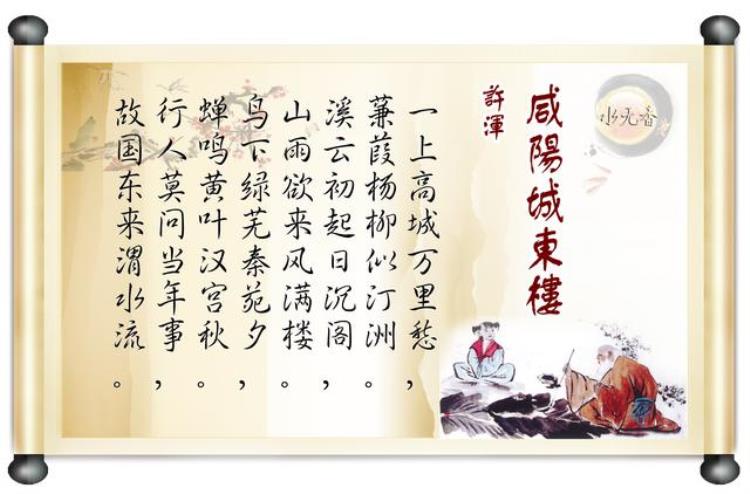 咸陽城東樓
許渾
一上高城万里愁，
蒹葭杨柳似汀洲。
溪云初起日沉阁，
山雨欲来风满楼。
鸟下绿芜秦苑夕，
蝉鸣黄叶汉宫秋。
行人莫问当年事，
故国东来渭水流。
水无香